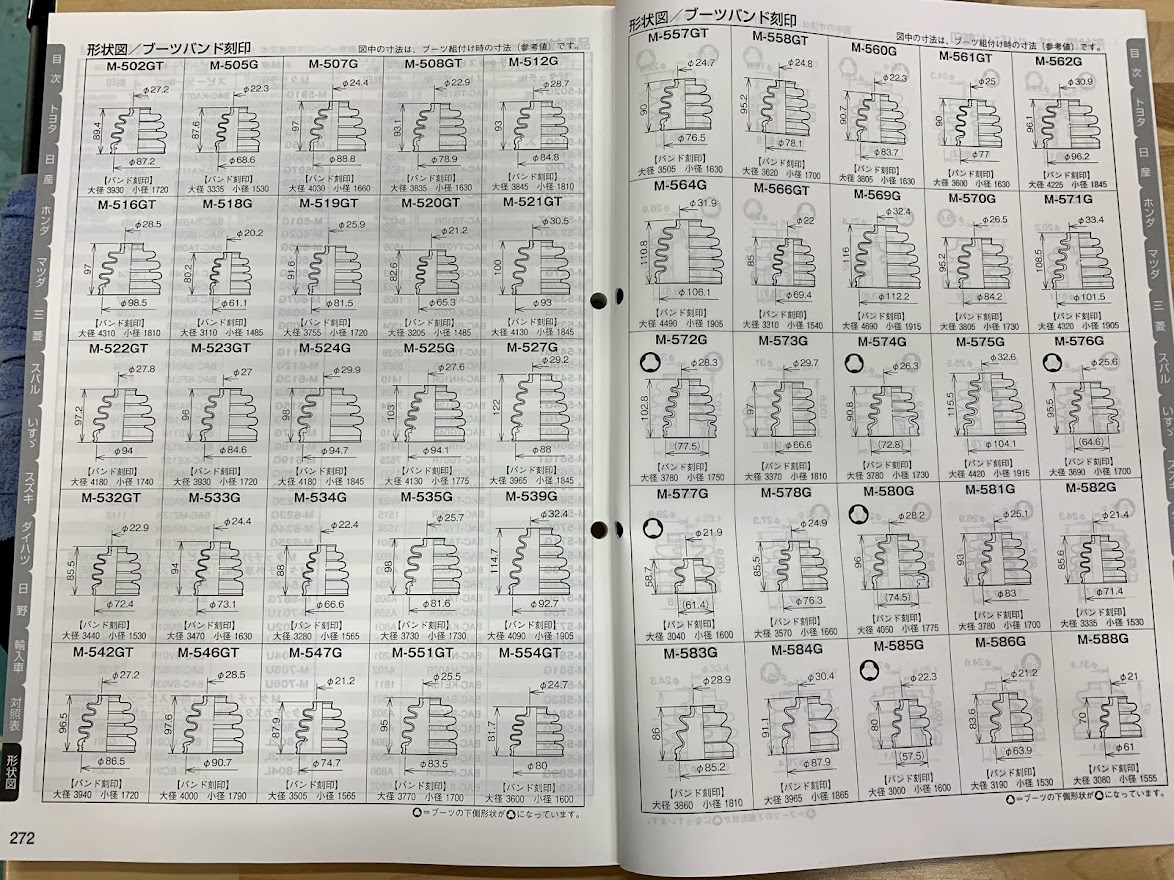 形状図／ブーツバンド刻印
図中の寸法は、ブーツ組付け時の寸法（参考値）です。
M-502GT M-505G M-507G M-508GT M-512G
φ27.2 φ22.3 φ24.4 φ22.9 φ28.7
89.4 87.6 97 93.1 93
φ87.2 φ68.6 φ88.8 φ78.9 φ84.8
【バンド刻印】 【バンド刻印】 【バンド刻印】 【バンド刻印】 【バンド刻印】
大径 3930 小径 1720 大径 3335 小径 1530 大径 4030 小径 1660 大径 3835 小径 1630 大径 3845 小径 1810
M-516GT M-518G M-519GT M-520GT M-521GT
φ28.5 φ20.2 φ25.9 φ21.2 φ30.5
97 80.2 91.6 82.6 100
φ98.5 φ61.1 φ81.5 φ65.3 φ93
【バンド刻印】 【バンド刻印】 【バンド刻印】 【バンド刻印】 【バンド刻印】
大径 4310 小径 1810 大径 3110 小径 1485 大径 3755 小径 1720 大径 3205 小径 1485 大径 4130 小径 1845
M-522GT M-523GT M-524G M-525G M-527G
φ27.8 φ27 φ29.9 φ27.6 φ29.2
97.2 96 98 103 122
φ94 φ84.6 φ94.7 φ94.1 φ88
【バンド刻印】 【バンド刻印】 【バンド刻印】 【バンド刻印】 【バンド刻印】
大径 4180 小径 1740 大径 3930 小径 1720 大径 4180 小径 1845 大径 4130 小径 1775 大径 3965 小径 1845
M-532GT M-533G M-534G M-535G M-539G
φ22.9 φ24.4 φ22.4 φ25.7 φ32.4
85.5 94 88 98 114.7
φ72.4 φ73.1 φ66.6 φ81.6 φ92.7
【バンド刻印】 【バンド刻印】 【バンド刻印】 【バンド刻印】 【バンド刻印】
大径 3440 小径 1530 大径 3470 小径 1630 大径 3280 小径 1565 大径 3730 小径 1730 大径 4090 小径 1905
M-542GT M-546GT M-547G M-551GT M-554GT
φ27.2 φ28.5 φ21.2 φ25.5 φ24.7
96.5 97.6 87.9 95 81.7
φ86.5 φ90.7 φ74.7 φ83.5 φ80
【バンド刻印】 【バンド刻印】 【バンド刻印】 【バンド刻印】 【バンド刻印】
大径 3940 小径 1720 大径 4000 小径 1790 大径 3505 小径 1565 大径 3770 小径 1700 大径 3600 小径 1600
＝ブーツの下側形状が になっています。
目次
トヨタ
日産
ホンダ
マツダ
三菱
スバル
いすゞ
スズキ
ダイハツ
日野
輸入車
対照表
形状図
272
形状図／ブーツバンド刻印
図中の寸法は、ブーツ組付け時の寸法（参考値）です。
M-557GT M-558GT M-560G M-561GT M-562G
φ24.7 φ24.8 φ22.3 φ25 φ30.9
90 95.2 90.7 90 96.1
φ76.5 φ78.1 φ83.7 φ77 φ96.2
【バンド刻印】 【バンド刻印】 【バンド刻印】 【バンド刻印】 【バンド刻印】
大径 3505 小径 1630 大径 3620 小径 1700 大径 3805 小径 1630 大径 3600 小径 1630 大径 4225 小径 1845
M-564G M-566GT M-569G M-570G M-571G
φ31.9 φ22 φ32.4 φ26.5 φ33.4
110.8 85 116 95.2 108.5
φ106.1 φ69.4 φ112.2 φ84.2 φ101.5
【バンド刻印】 【バンド刻印】 【バンド刻印】 【バンド刻印】 【バンド刻印】
大径 4490 小径 1905 大径 3310 小径 1540 大径 4690 小径 1915 大径 3805 小径 1730 大径 4320 小径 1905
M-572G M-573G M-574G M-575G M-576G
φ28.3 φ29.7 φ26.3 φ32.6 φ25.6
102.8 97 90.8 115.5 95.5
(77.5) φ66.6 (72.8) φ104.1 (64.6)
【バンド刻印】 【バンド刻印】 【バンド刻印】 【バンド刻印】 【バンド刻印】
大径 3780 小径 1750 大径 3370 小径 1810 大径 3780 小径 1730 大径 4420 小径 1915 大径 3690 小径 1700
M-577G M-578G M-580G M-581G M-582G
φ21.9 φ24.9 φ28.2 φ25.1 φ21.4
58.7 85.5 96 93 85.6
(61.4) φ76.3 (74.5) φ83 φ71.4
【バンド刻印】 【バンド刻印】 【バンド刻印】 【バンド刻印】 【バンド刻印】
大径 3040 小径 1600 大径 3570 小径 1660 大径 4050 小径 1775 大径 3780 小径 1700 大径 3335 小径 1530
M-583G M-584G M-585G M-586G M-588G
φ28.9 φ30.4 φ22.3 φ21.2 φ21
86.1 91.1 80 83.6 70
φ85.2 φ87.9 (57.5) φ63.9 φ61
【バンド刻印】 【バンド刻印】 【バンド刻印】 【バンド刻印】 【バンド刻印】
大径 3860 小径 1810 大径 3965 小径 1865 大径 3000 小径 1600 大径 3190 小径 1530 大径 3080 小径 1555
＝ブーツの下側形状が になっています。
目次
トヨタ
日産
ホンダ
マツダ
三菱
スバル
いすゞ